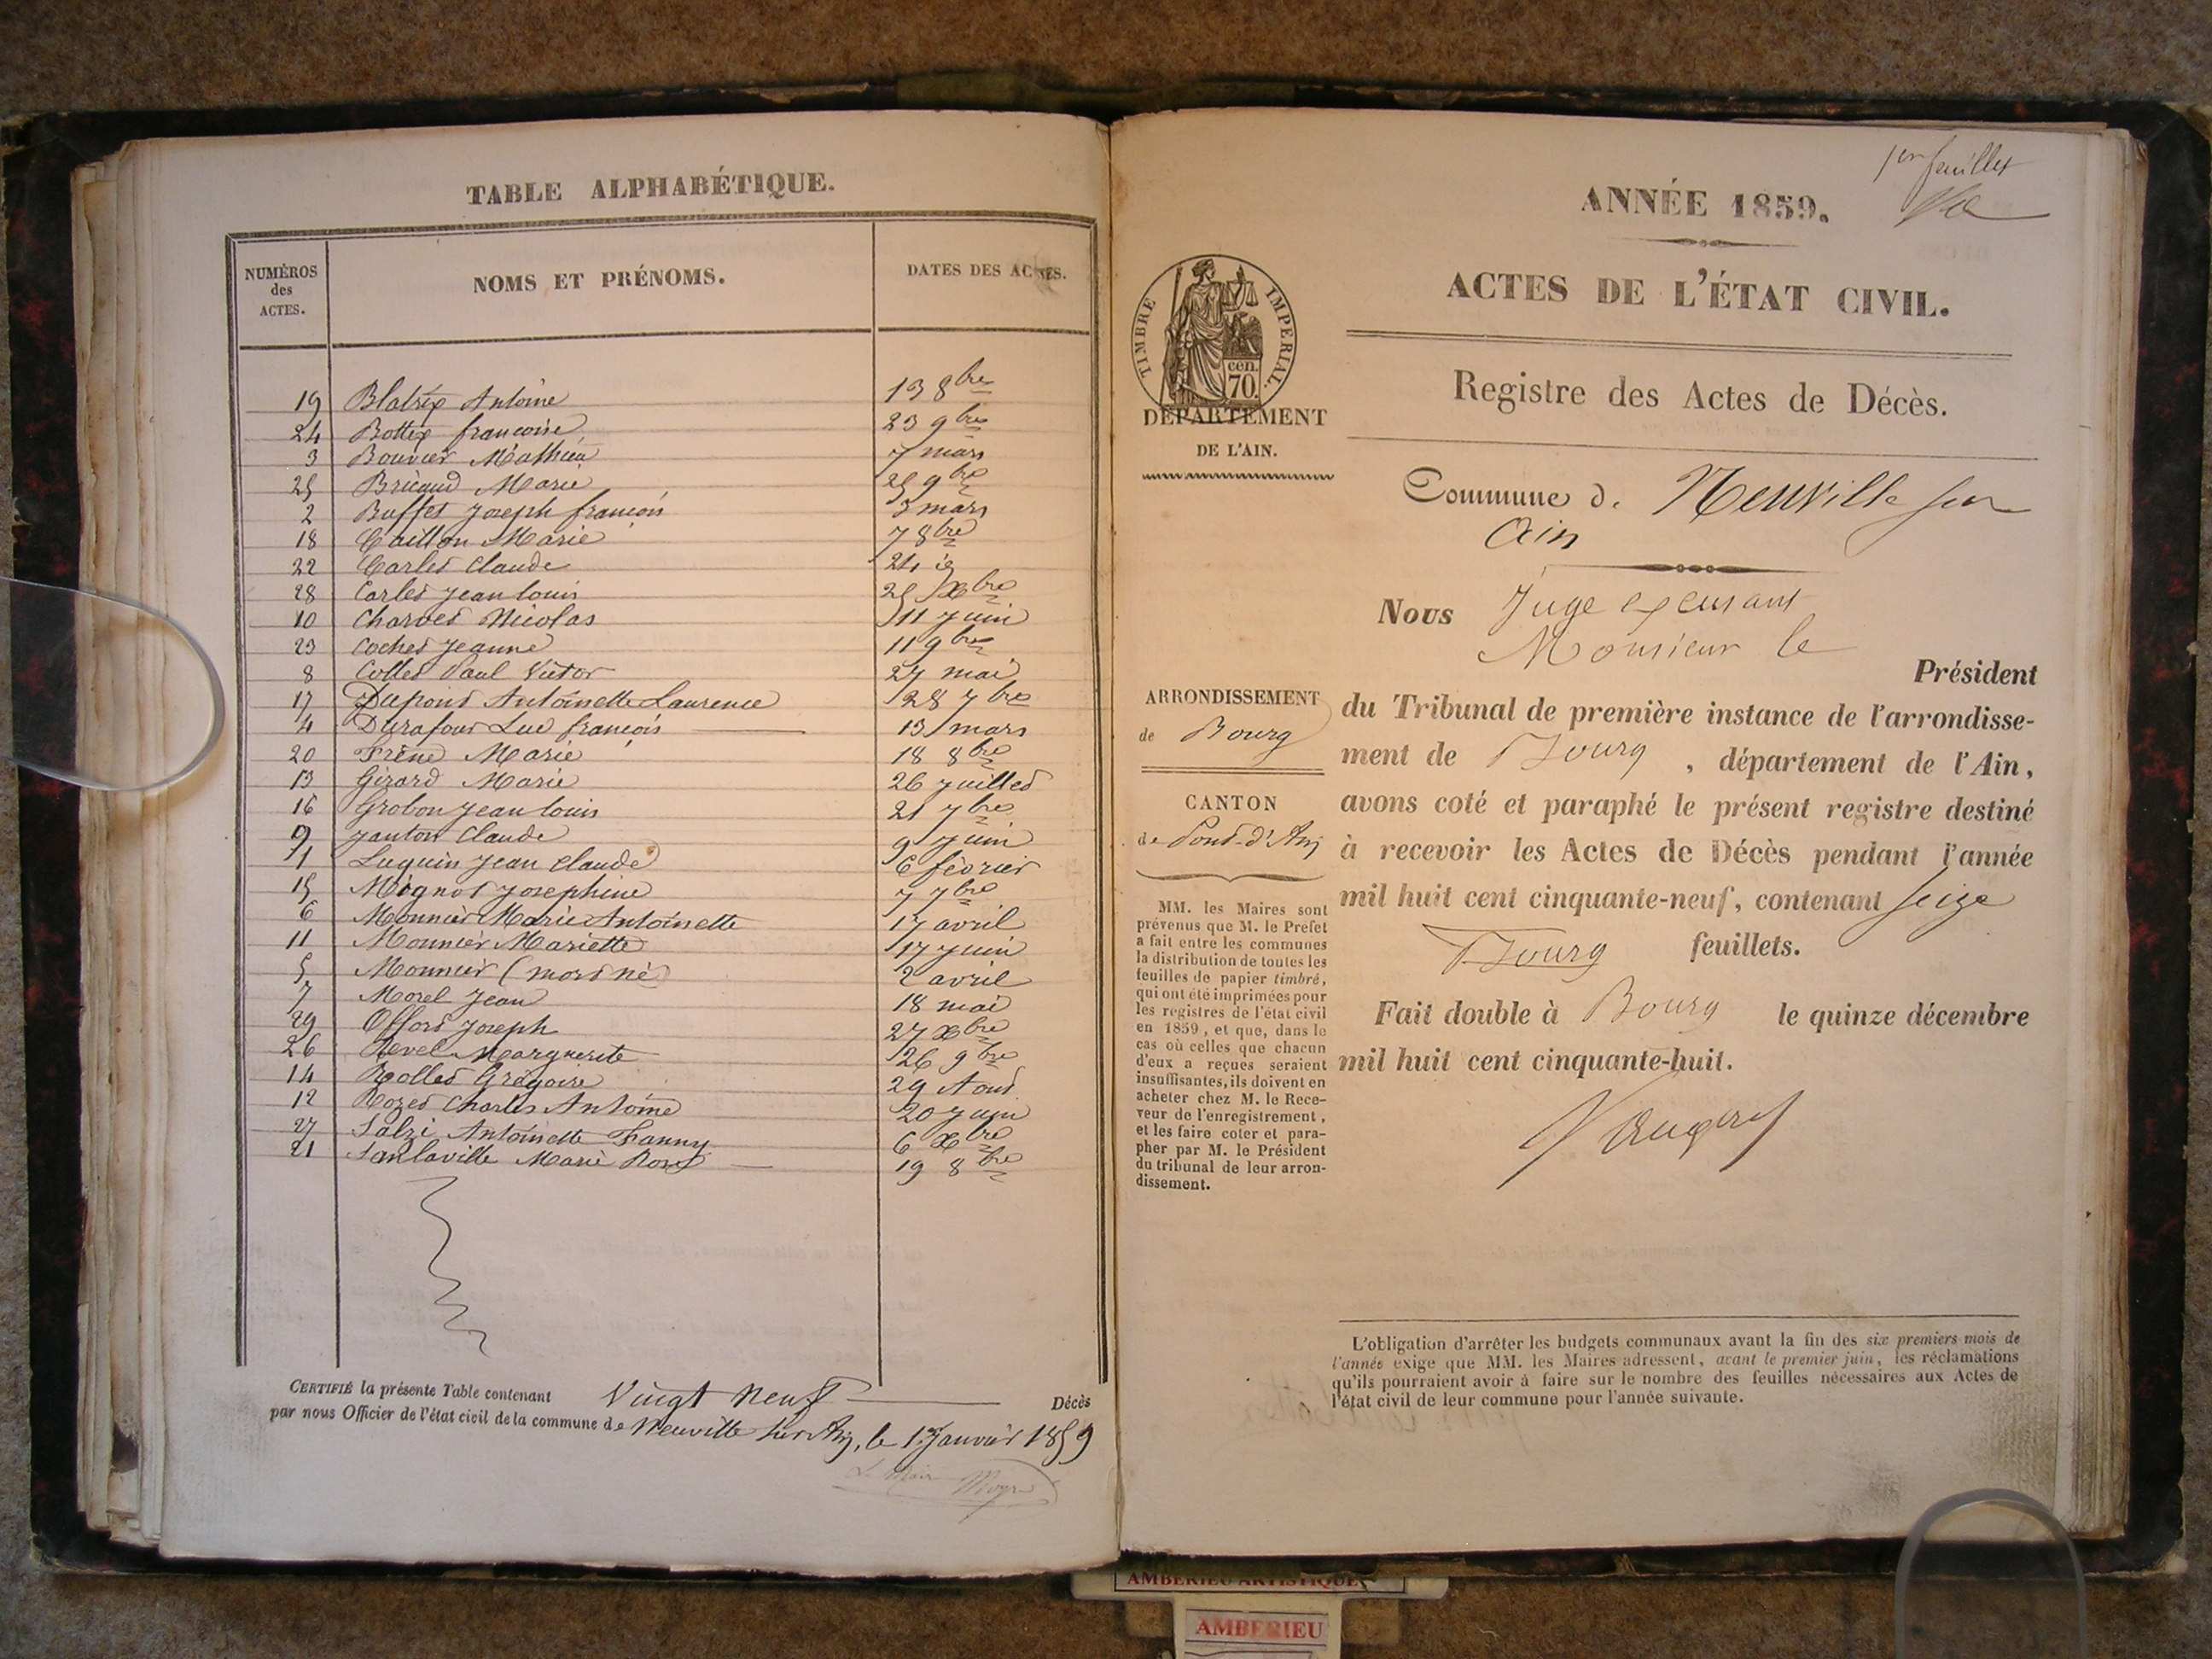 TABLE ALPHABÉTIQUE.
NUMÉROS des ACTES. NOMS ET PRÉNOMS. DATES DES ACTES.
19 Blatrix Antoine 13 8bre
24 Bottex francoise 23 9bre
3 Bouvier Mathieu 7 mars
25 Bricaud Marie 25 9bre
2 Buffet Joseph françois 3 mars
18 Caillon Marie 7 8bre
22 Carlet Claude 24 id
28 Carlet Jean louis 25 Xbre
10 Charvet Nicolas 11 juin
23 Cochet Jeanne 11 9bre
8 Collet Paul Victor 27 mai
17 Dupont Antoinette Laurence 28 7bre
4 Durafour Luc françois 13 mars
20 Frène Marie 18 8bre
13 Girard Marie 26 juillet
16 Grobon Jean louis 21 7bre
9 Janton Claude 9 juin
1 Luquin Jean Claude 6 février
15 Mognot Josephine 7 7bre
6 Monnier Marie Antoinette 17 avril
11 Monnier Mariette 17 juin
5 Monnier (mort né) 2 avril
7 Morel Jean 18 mai
29 Offord Joseph 27 Xbre
26 Revel Marguerite 26 9bre
14 Rollet Grégoire 29 Aout
12 Rozet Charles Antoine 20 juin
27 Salzi Antoinette Fanny 6 Xbre
21 Sanlaville Marie Rose 19 8bre
CERTIFIÉ la présente Table contenant Vingt Neuf Décès
par nous Officier de l'état civil de la commune de Neuville sur Ain, le 1er Janvier 1859
Le Maire
1er feuillet
ANNÉE 1859.
ACTES DE L'ÉTAT CIVIL.
TIMBRE IMPERIAL.
cen.
70.
DÉPARTEMENT
DE L'AIN.
Registre des Actes de Décès.
Commune de Neuville sur
Ain
Nous Juge excusant
Monsieur le
Président
ARRONDISSEMENT
de Bourg
du Tribunal de première instance de l'arrondisse-
ment de Bourg, département de l'Ain,
CANTON
de Pont-d'Ain
avons coté et paraphé le présent registre destiné
à recevoir les Actes de Décès pendant l'année
mil huit cent cinquante-neuf, contenant seize
Bourg feuillets.
Fait double à Bourg le quinze décembre
mil huit cent cinquante-huit.
MM. les Maires sont
prévenus que M. le Préfet
a fait entre les communes
la distribution de toutes les
feuilles de papier timbré,
qui ont été imprimées pour
les registres de l'état civil
en 1859, et que, dans le
cas où celles que chacun
d'eux a reçues seraient
insuffisantes, ils doivent en
acheter chez M. le Rece-
veur de l'enregistrement,
et les faire coter et para-
pher par M. le Président
du tribunal de leur arron-
dissement.
L'obligation d'arrêter les budgets communaux avant la fin des six premiers mois de
l'année exige que MM. les Maires adressent, avant le premier juin, les réclamations
qu'ils pourraient avoir à faire sur le nombre des feuilles nécessaires aux Actes de
l'état civil de leur commune pour l'année suivante.
AMBERIEU ARTISTIQUE
AMBERIEU